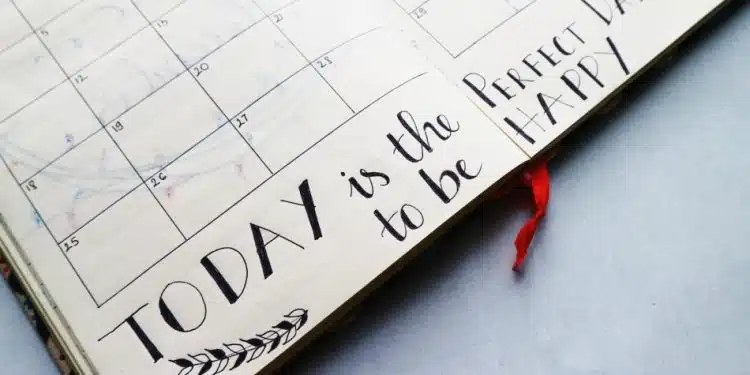 5
12
18 19 20 21
25 26 27 28
TODAY is the PERFECT DA
to be HAPPY